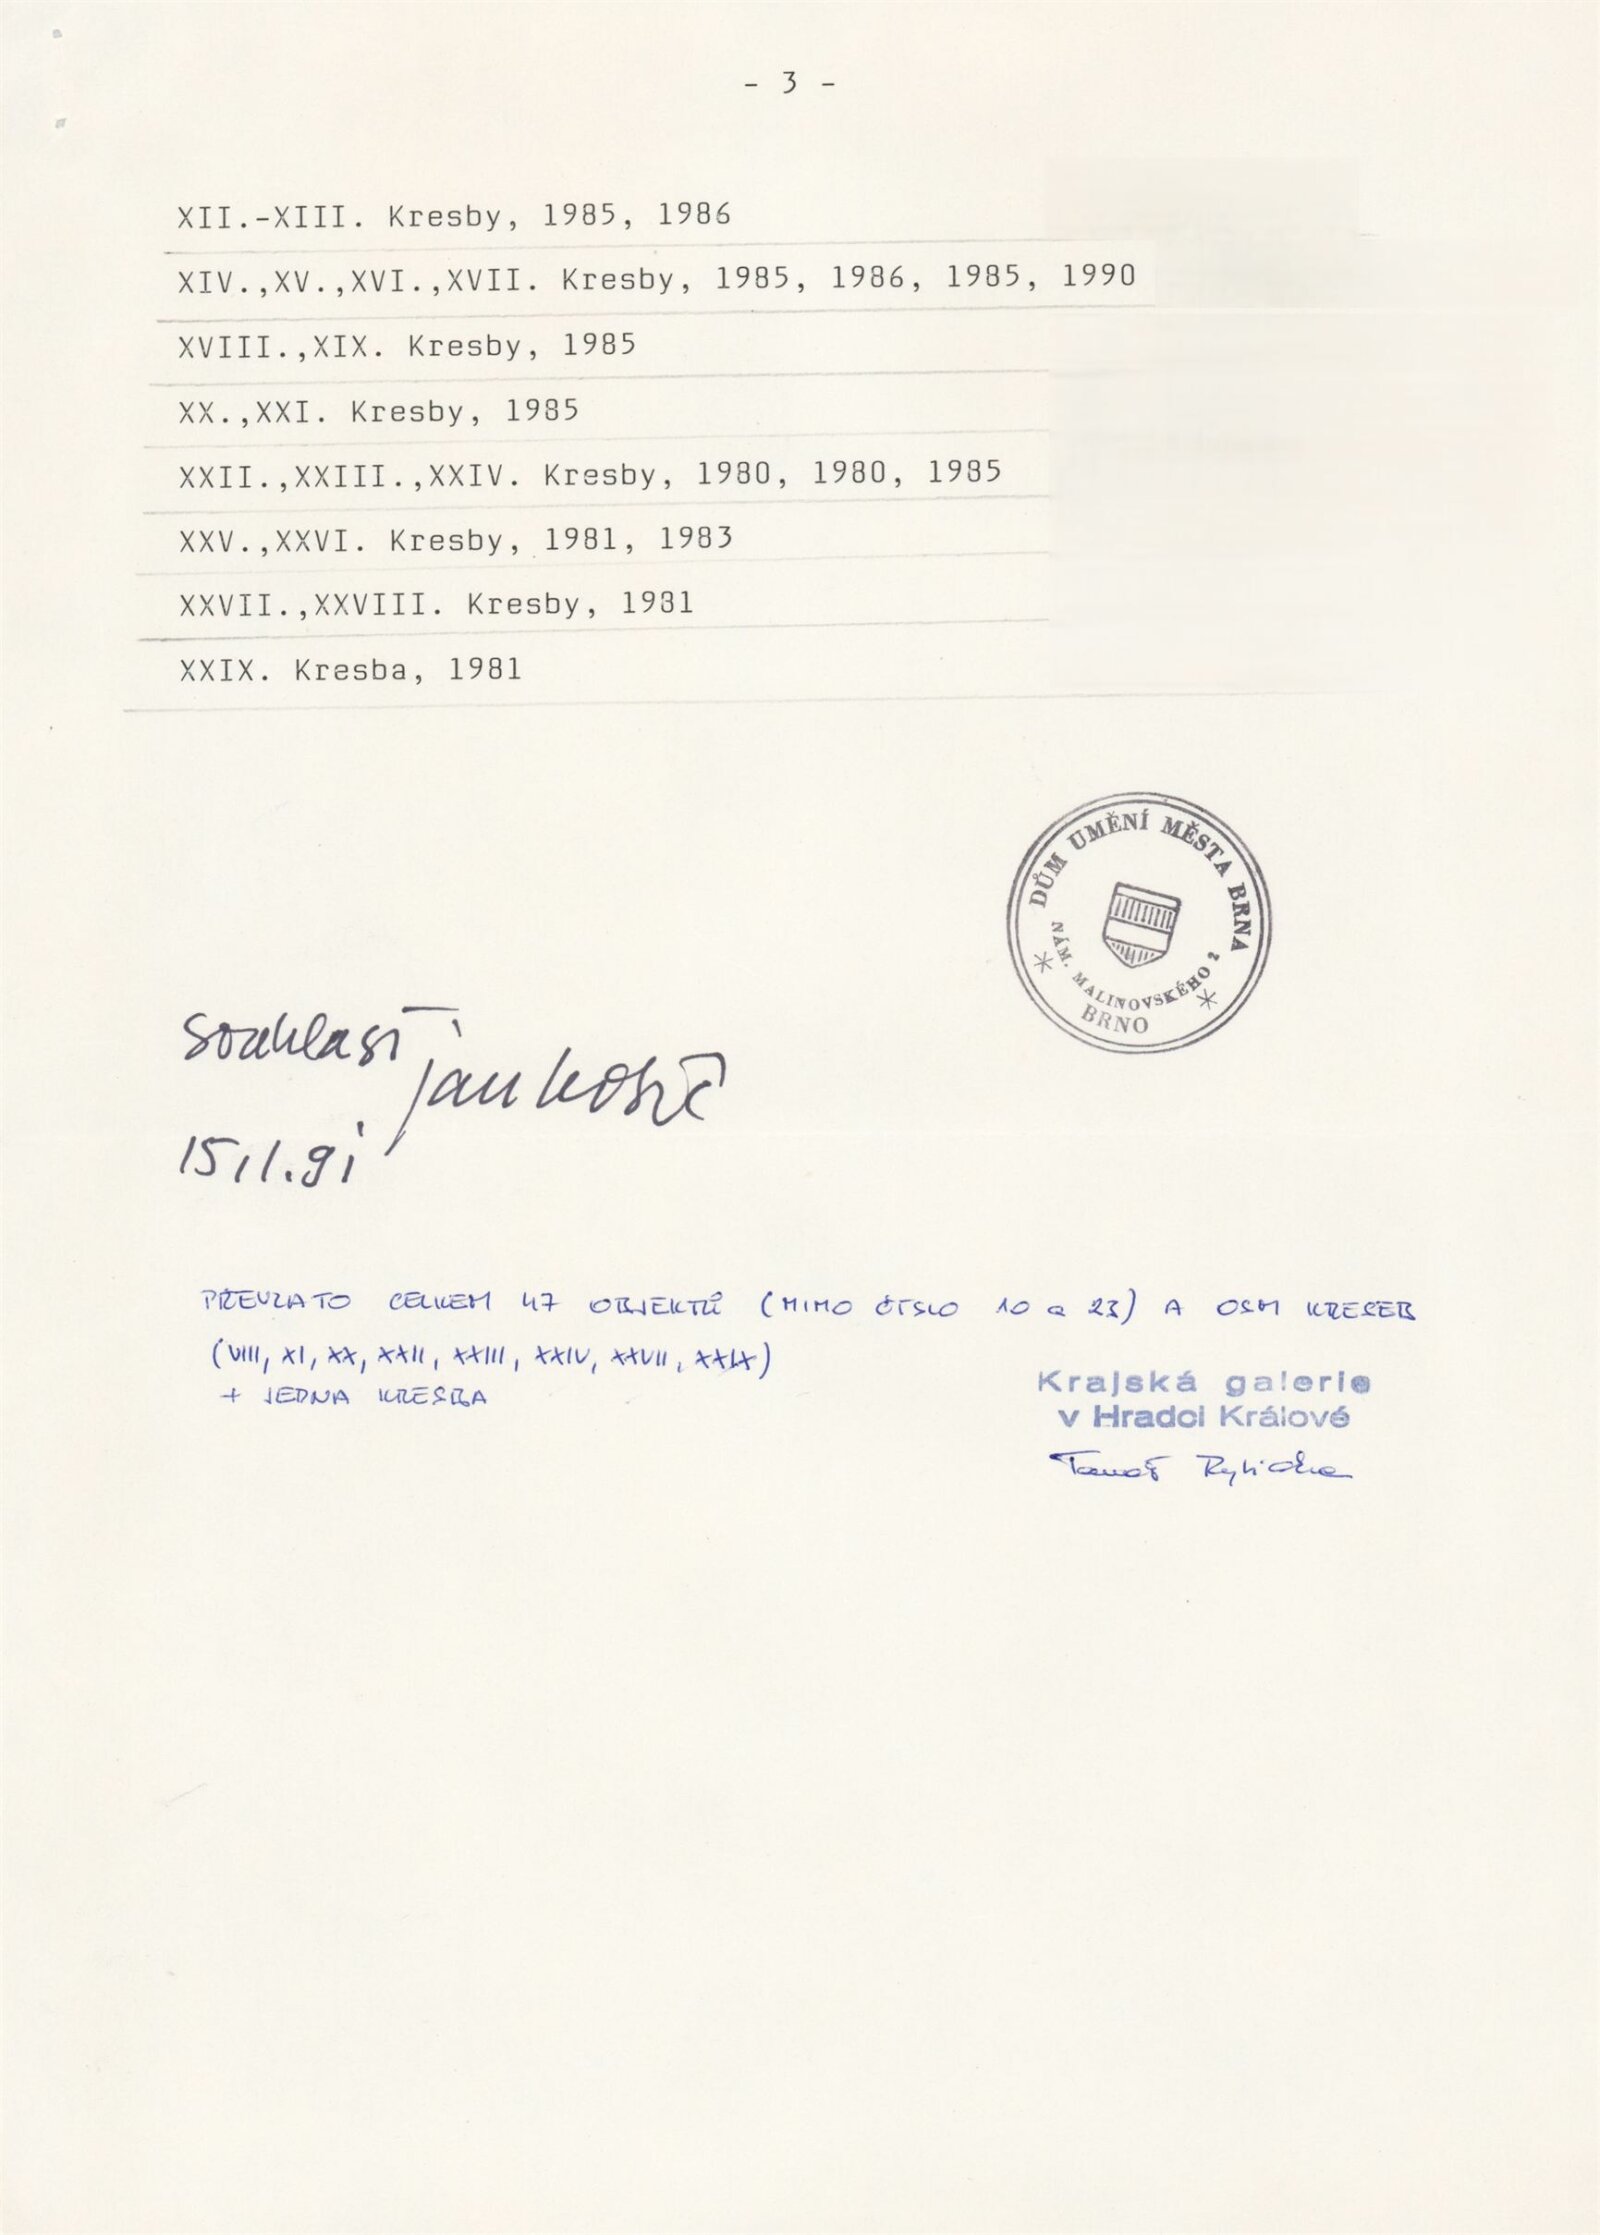 - 3 -
XII.-XIII. Kresby, 1985, 1986
XIV.,XV.,XVI.,XVII. Kresby, 1985, 1986, 1985, 1990
XVIII.,XIX. Kresby, 1985
XX.,XXI. Kresby, 1985
XXII.,XXIII.,XXIV. Kresby, 1980, 1980, 1985
XXV.,XXVI. Kresby, 1981, 1983
XXVII.,XXVIII. Kresby, 1981
XXIX. Kresba, 1981
DŮM UMĚNÍ MĚSTA BRNA
NÁM. MALINOVSKÉHO 2
BRNO
souhlasí
jan
15.1.91
PŘEVZATO CELKEM 47 OBJEKTŮ (MIMO ČÍSLO 10 a 23) A OSM KRESEB
(VIII, XI, XX, XXII, XXIII, XXIV, XXVII, XXIX)
+ JEDNA KRESBA
Krajská galerie
v Hradci Králové
Tomáš